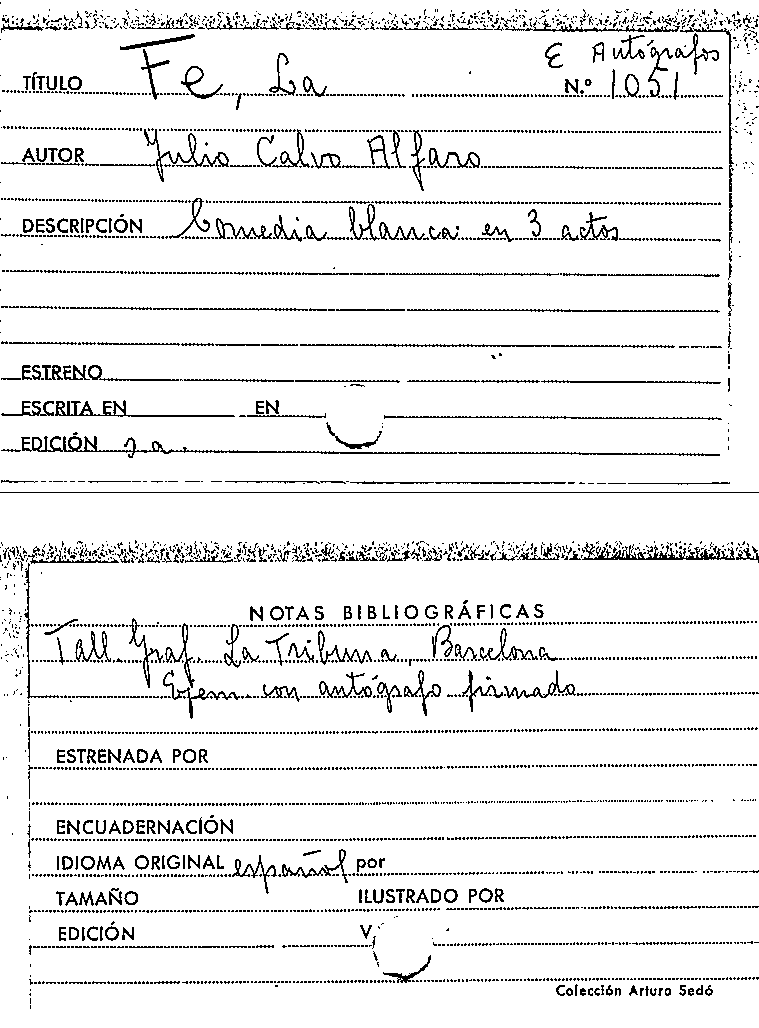 E Autógrafos
TÍTULO Fe, La N.º 1051
AUTOR Julio Calvo Alfaro
DESCRIPCIÓN Comedia blanca en 3 actos
ESTRENO
ESCRITA EN EN
EDICIÓN s.a.
NOTAS BIBLIOGRÁFICAS
Tall. Graf. La Tribuna, Barcelona
Ejem. con autógrafo firmado
ESTRENADA POR
ENCUADERNACIÓN
IDIOMA ORIGINAL español por
TAMAÑO ILUSTRADO POR
EDICIÓN V
Colección Arturo Sedó